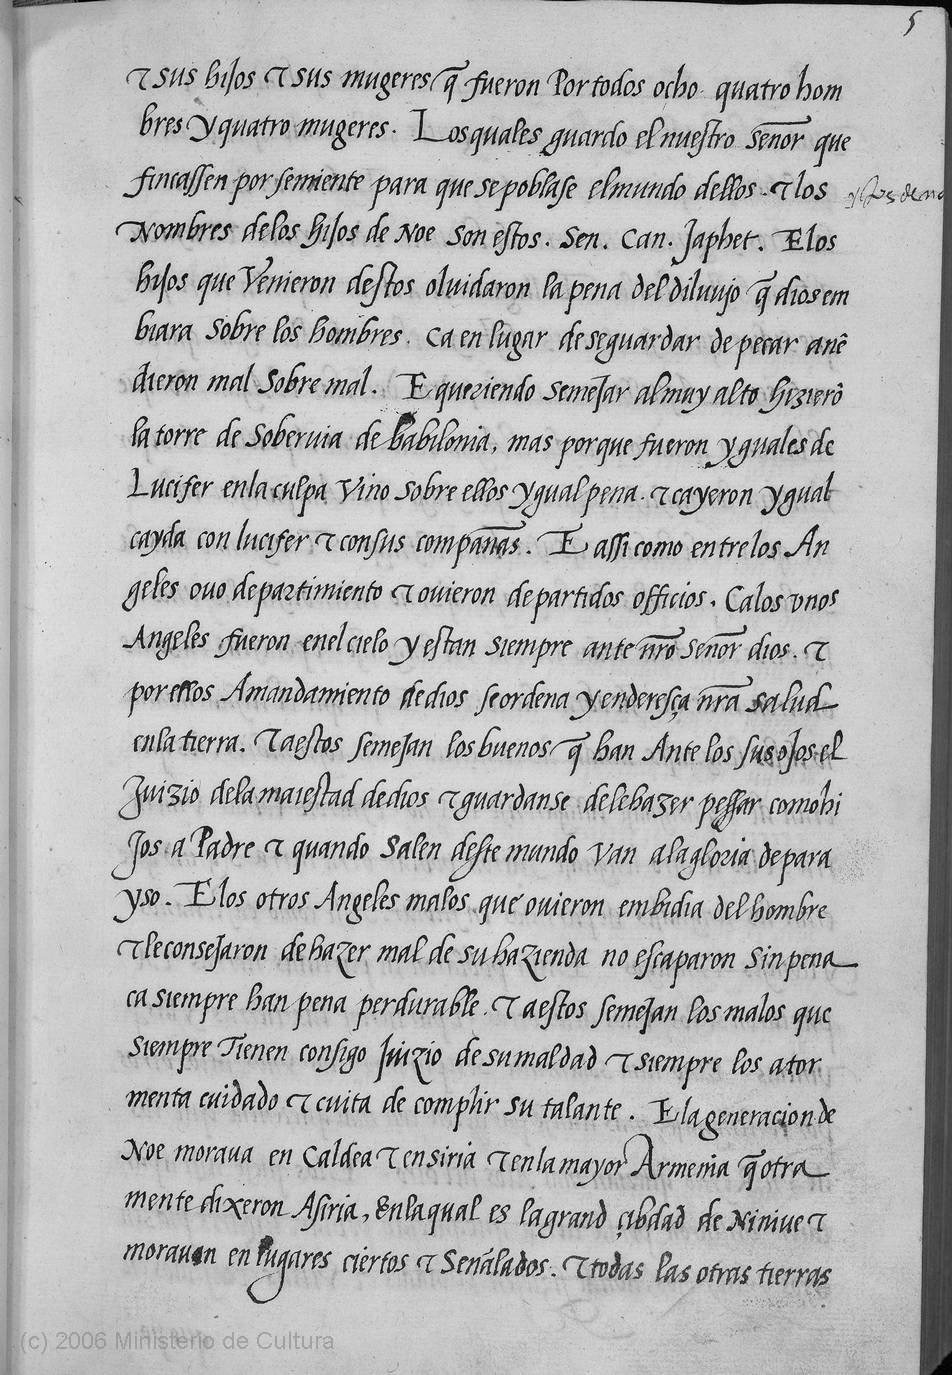 5
⁊ sus hijos ⁊ sus mugeres q̃ fueron Por todos ocho quatro hom
bres y quatro mugeres. Los quales guardo el nuestro señor que
fincassen por semiente para que se poblase el mundo dellos. ⁊ los
Nombres delos hijos de Noe son estos. Sen. Can. Japhet. E los
hijos que Venieron destos oluidaron la pena del diluujo q̃ dios em
biara sobre los hombres. ca en lugar de se guardar de pecar anẽ
dieron mal sobre mal. E queriendo semejar al muy alto hizierõ
la torre de Soberuia de babilonia, mas por que fueron yguales de
Lucifer en la culpa Vino sobre ellos ygual pena. ⁊ cayeron ygual
cayda con lucifer ⁊ con sus compañas. E assi como entre los An
geles ouo departimiento ⁊ ouieron departidos officios. Ca los vnos
Angeles fueron en el cielo y estan siempre ante nr̃o señor dios. ⁊
por ellos A mandamiento de dios se ordena y enderesça nr̃a salud
en la tierra. ⁊ a estos semejan los buenos q̃ han Ante los sus ojos el
Juizio dela maiestad de dios ⁊ guardanse dele hazer pessar como hi
jos a Padre ⁊ quando salen deste mundo van a la gloria de para
yso. E los otros Angeles malos que ouieron embidia del hombre
⁊ le consejaron de hazer mal de su hazienda no escaparon sin pena
ca siempre han pena perdurable. ⁊ a estos semejan los malos que
siempre Tienen consigo Juizio de su maldad ⁊ siempre los ator
menta cuidado ⁊ cuita de complir su talante. E la generacion de
Noe moraua en Caldea ⁊ en siria ⁊ en la mayor Armenia q̃ otra
mente dixeron Asiria, En la qual es la grand çibdad de Niniue ⁊
morauan en lugares ciertos ⁊ Señalados. ⁊ todas las otras tierras
(c) 2006 Ministerio de Cultura